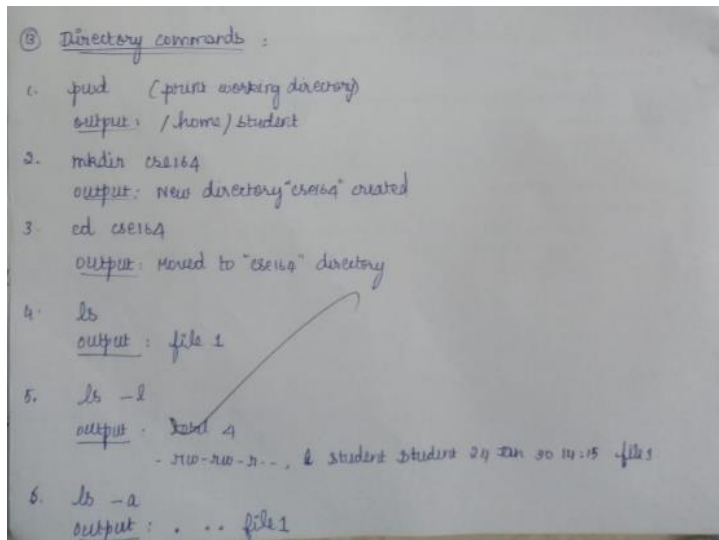 Ⓑ Directory commands :
1. pwd (print working directory)
output : /home/student
2. mkdir cse164
output : New directory "cse164" created
3. cd cse164
output : Moved to "cse164" directory
4. ls
output : file 1
5. ls -l
output : total 4
student student 24 Jan 30 14:15 file1
6. ls -a
output : . .. file1